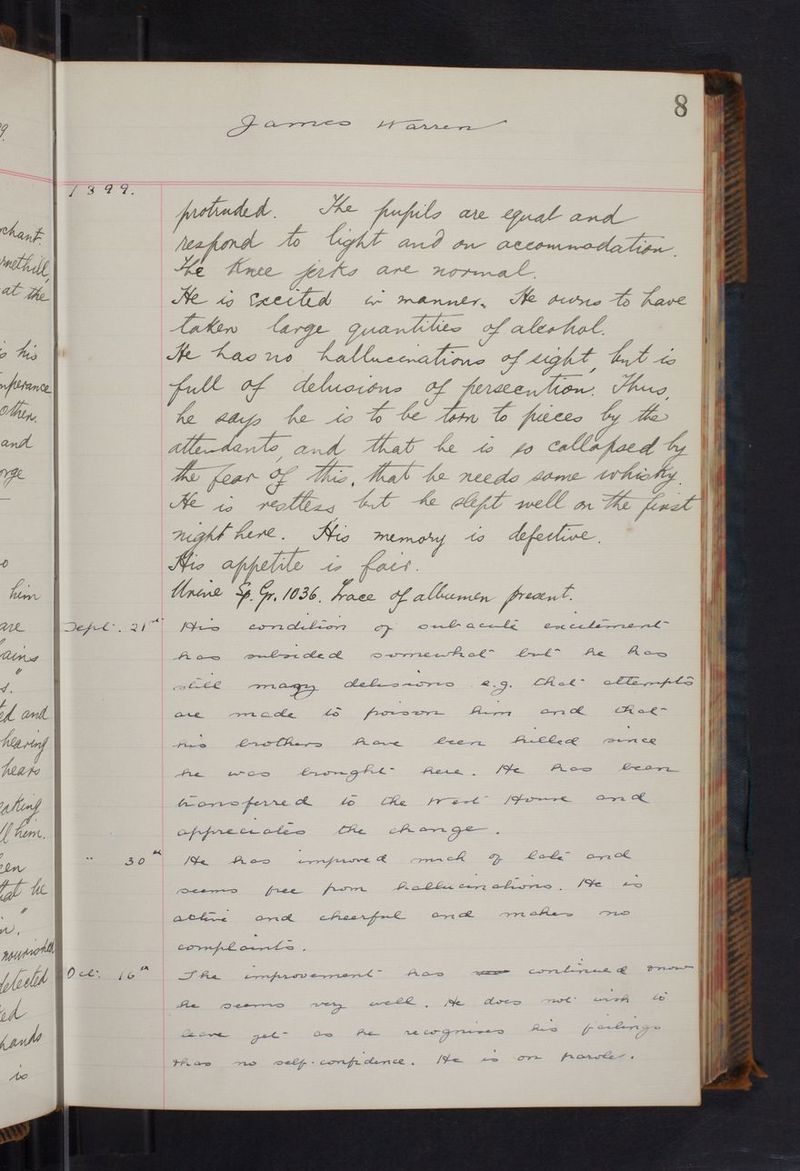 8
James Warren
1899.
protruded. The pupils are equal and
respond to light and on accommodation.
The Knee jerks are normal.
He is excited in manner. He owns to have
taken large quantities of alcohol.
He has no hallucinations of sight, but is
full of delusions of persecution. Thus,
he says he is to be torn to pieces by the
attendants, and that he is so collapsed by
the fear of this, that he needs some whisky.
He is restless but he slept well on the first
night here. His memory is defective.
His appetite is fair.
Urine Sp. Gr. 1036. Trace of albumen present.
Sept. 21st His condition of subacute excitement
has subsided somewhat but he has
still many delusions e.g. that attempts
are made to poison him and that
his brothers have been killed since
he was brought here. He has been
transferred to the West House and
appreciates the change.
" 30th He has improved much of late and
seems free from hallucinations. He is
active and cheerful and makes no
complaints.
Oct. 16th The improvement has continued & now
he seems very well. He does not wish to
leave yet as he recognises his failings
& has no self-confidence. He is on parole.
9.
chant
methill,
at the
his
mperance
other.
and
orge
him
are
ains
s."
ed and
hearing
hears
aking
ll him.
een
that he
nourished
detected
ed
hands
is